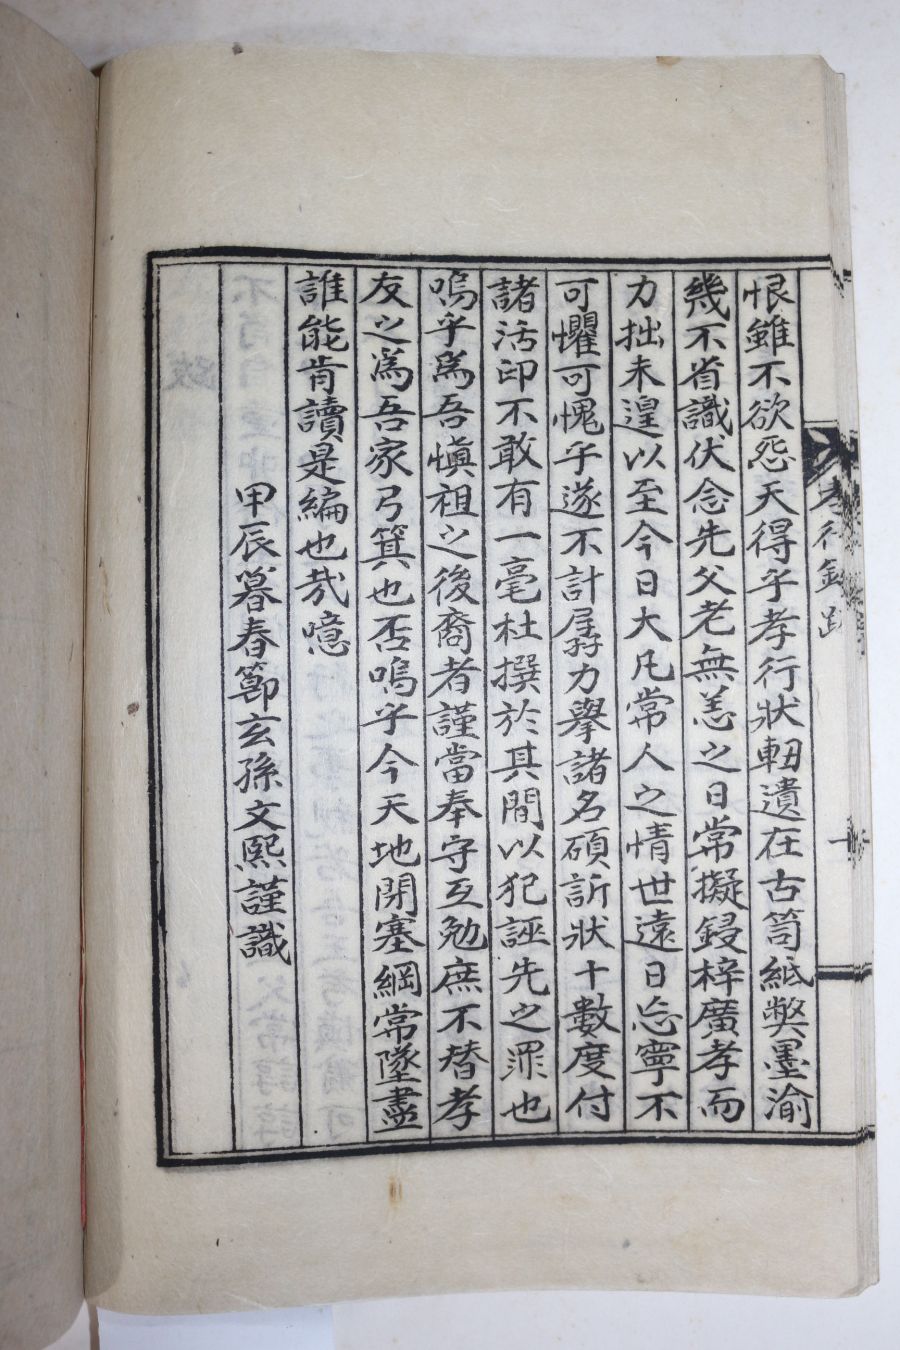 恨雖不欲怨天得乎孝行狀軔遺在古笥紙獘墨渝
幾不省識伏念先父老無恙之日常擬鋟梓廣孝而
力拙未遑以至今日大凡常人之情世遠日忘寧不
可懼可愧乎遂不計孱力擧諸名碩訢狀十數度付
諸活印不敢有一毫杜撰於其間以犯誣先之罪也
嗚乎爲吾愼祖之後裔者謹當奉守互勉庶不替孝
友之爲吾家弓箕也否嗚乎今天地閉塞綱常墜盡
誰能肯讀是編也㢤噫
甲辰暮春節玄孫文熙謹識